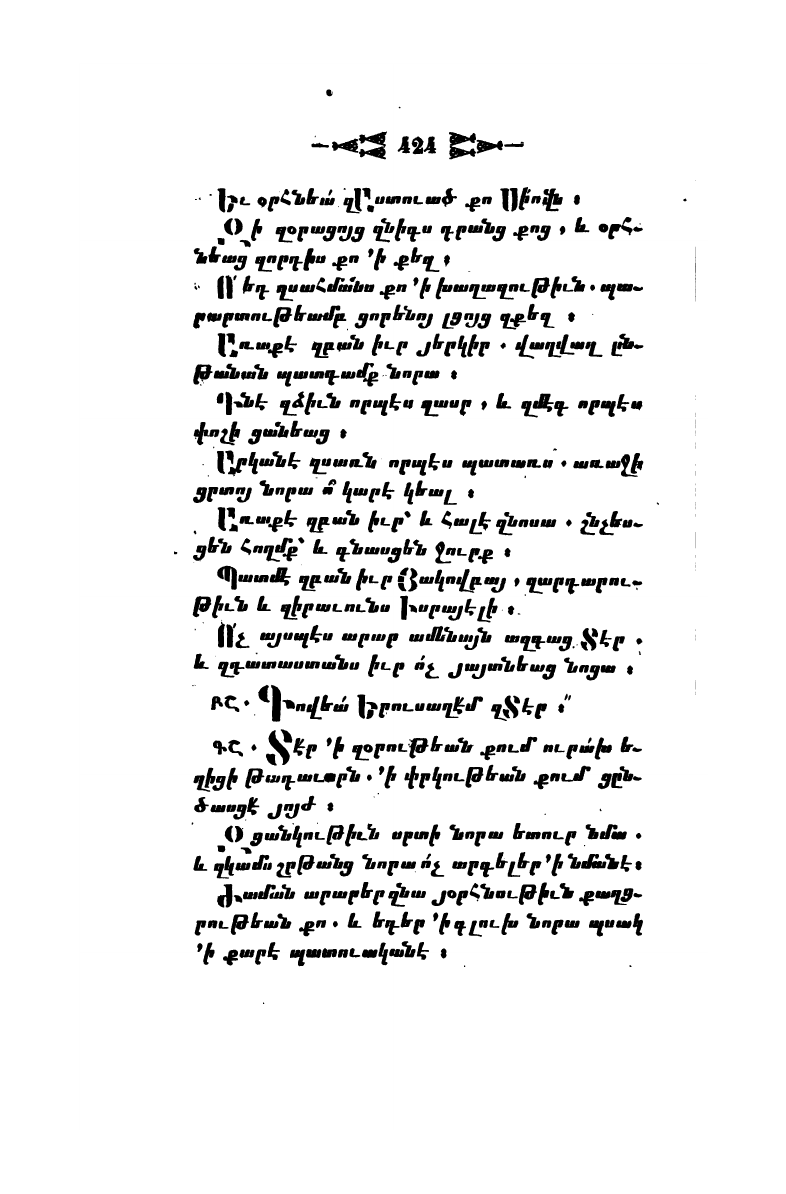 424
Եւ օրհնեա՛ զԱստուած քո Սիո՛վն ։
Զի զօրացոյց զնիգս դրանց քոց , և օրհ-
նեաց զորդիս քո ՚ի քեզ ։
Ո՛ եդ զսահմանս քո ՚ի խաղաղութիւն . պա-
րարտութեամբ ցորենոյ լցոյց զքեզ ։
Առաքէ զբան իւր յերկիր . վաղվաղ ըն-
թանան պատգամք նորա ։
Դնէ զձիւն որպէս զասր , և զմէգ որպէս
փոշի ցանեաց ։
Արկանէ զսառն որպէս պատառս . առաջի
ցրտոյ նորա ո՞ կարէ կեալ ։
Առաքէ զբան իւր՝ և հալէ զնոսա . շնչես-
ցեն հողմք՝ և գնասցեն ջուրք ։
Պատմէ զբան իւր Յակովբայ , զարդարու-
թիւն և զիրաւունս Իսրայէլի ։
Ո՛չ այսպէս արար ամենայն ազգաց Տէր .
և զդատաստանս իւր ո՛չ յայտնեաց նոցա ։
ԲՇ . Գովեա՛ Երուսաղէմ զՏէր ։՞
ԳՇ . Տէր ՚ի զօրութեան քում ուրա՛խ ե-
ղիցի թագաւորն . ՚ի փրկութեան քում ցըն-
ծասցէ յոյժ ։
Զցանկութիւն սրտի նորա ետուր նմա .
և զկամս շրթանց նորա ո՛չ արգելեր ՚ի նմանէ ։
Ժաման արարեր զնա յօրհնութիւն քաղց-
րութեան քո . և եդեր ՚ի գլուխ նորա պսակ
՚ի քարէ պատուականէ ։